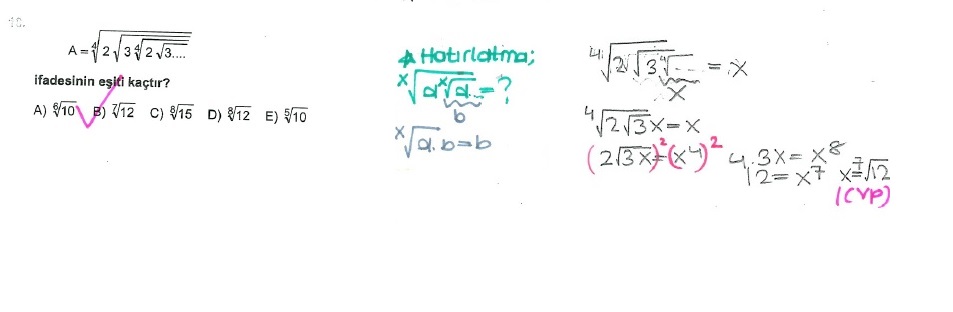 18.
A = ∜(2√(3∜(2√(3....))))
ifadesinin eşiti kaçtır?
A) ⁶√10 B) ⁷√12 C) ⁸√15 D) ⁸√12 E) ⁵√10
Hatırlatma;
ˣ√(a ˣ√(a... = ?
b
ˣ√(a.b = b
⁴√(2√(3⁴√... = x
x
⁴√(2√3x = x
(2√3x)² = (x⁴)²
4.3x = x⁸
12 = x⁷ x = ⁷√12
(CVP)